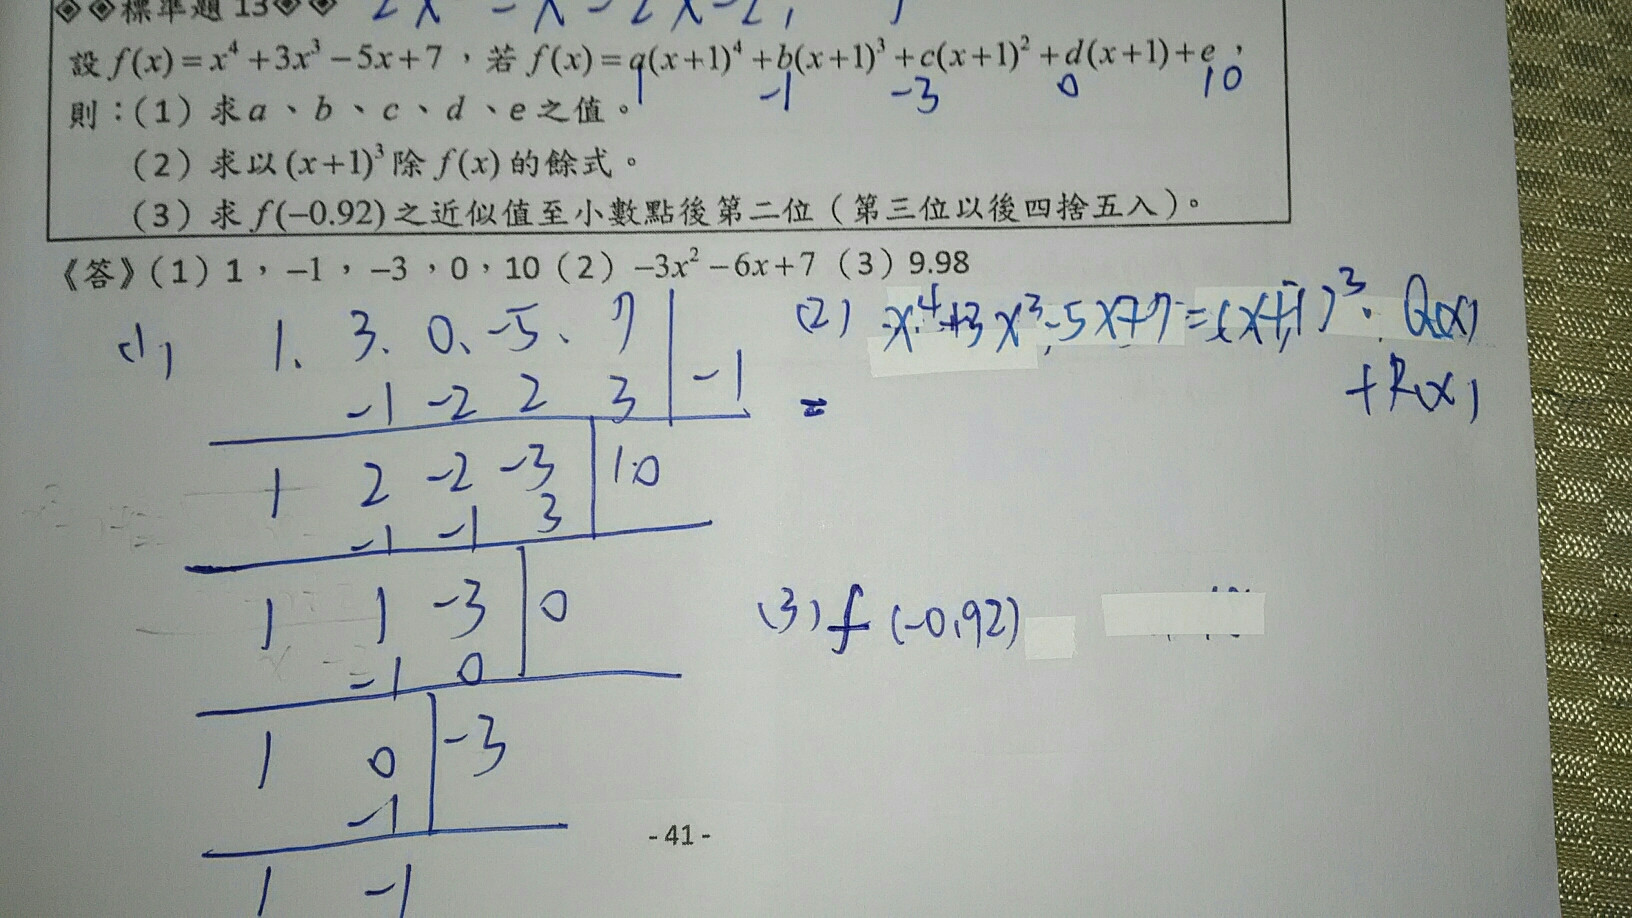 ◈◈標準題 13◈◈
設 f(x)=x⁴+3x³−5x+7，若 f(x)=a(x+1)⁴+b(x+1)³+c(x+1)²+d(x+1)+e，
1 -1 -3 0 10
則：(1) 求 a、b、c、d、e 之值。
(2) 求以 (x+1)³ 除 f(x) 的餘式。
(3) 求 f(−0.92) 之近似值至小數點後第二位（第三位以後四捨五入）。
《答》(1) 1，−1，−3，0，10 (2) −3x²−6x+7 (3) 9.98
(1) 1. 3. 0. -5. 7
-1 -2 2 3 -1
1 2 -2 -3 10
-1 -1 3
1 1 -3 0
-1 0
1 0 -3
-1
1 -1
(2) x⁴+3x³-5x+7=(x+1)³·Q(x)
+R(x)
=
(3) f(-0.92)
-41-